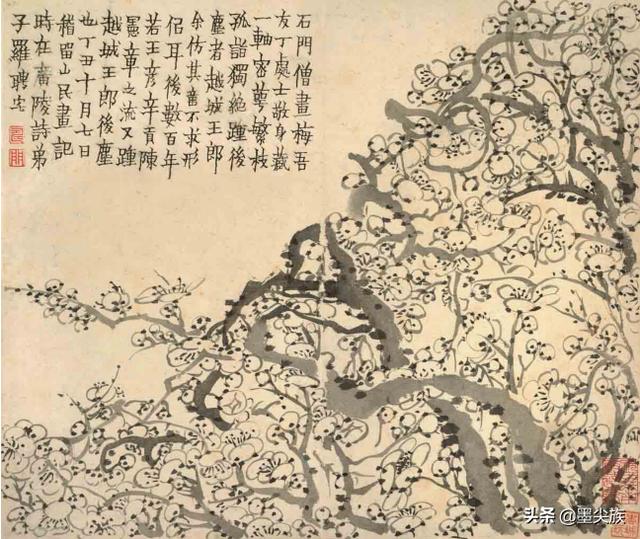 石門僧畫梅吾
友丁處士敬身藏
一軸密萼繁枝
孤詣獨絕踵後
塵者越城王郎
余仿其意不求形
佀耳後數百年
若王彦辛貢陳
憲章之流又踵
越城王郎後塵
也丁丑十月七日
稽留山民畫記
時在廣陵詩弟
子羅聘宅
头条 @墨尖族